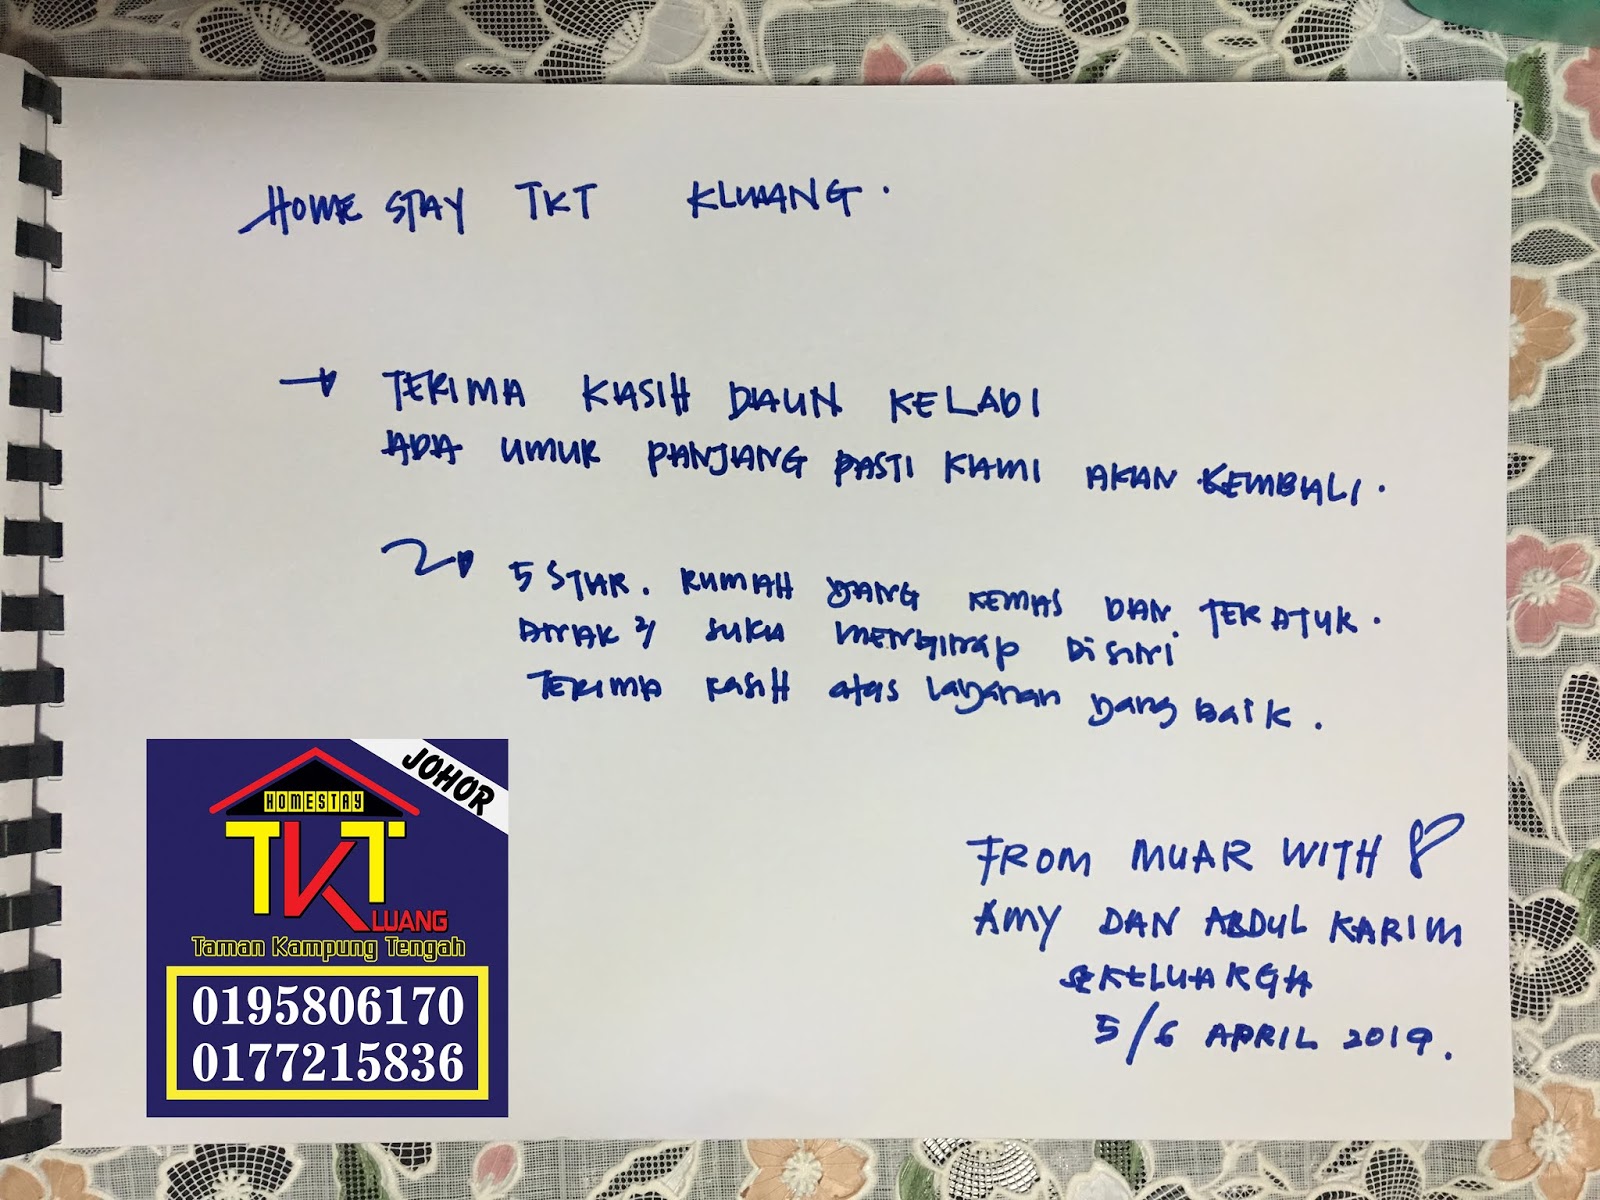 HOME STAY TKT KLUANG.
→ TERIMA KASIH DAUN KELADI
ADA UMUR PANJANG PASTI KAMI AKAN KEMBALI.
5 STAR. RUMAH YANG KEMAS DAN TERATUK.
ANAK2 SUKA MENGINAP DISINI
TERIMA KASIH atas layanan yang BAIK.
JOHOR
HOMESTAY
TKT
LUANG
Taman Kampung Tengah
0195806170
0177215836
FROM MUAR WITH
AMY DAN ABDUL KARIM
SEKELUARGA
5/6 APRIL 2019.